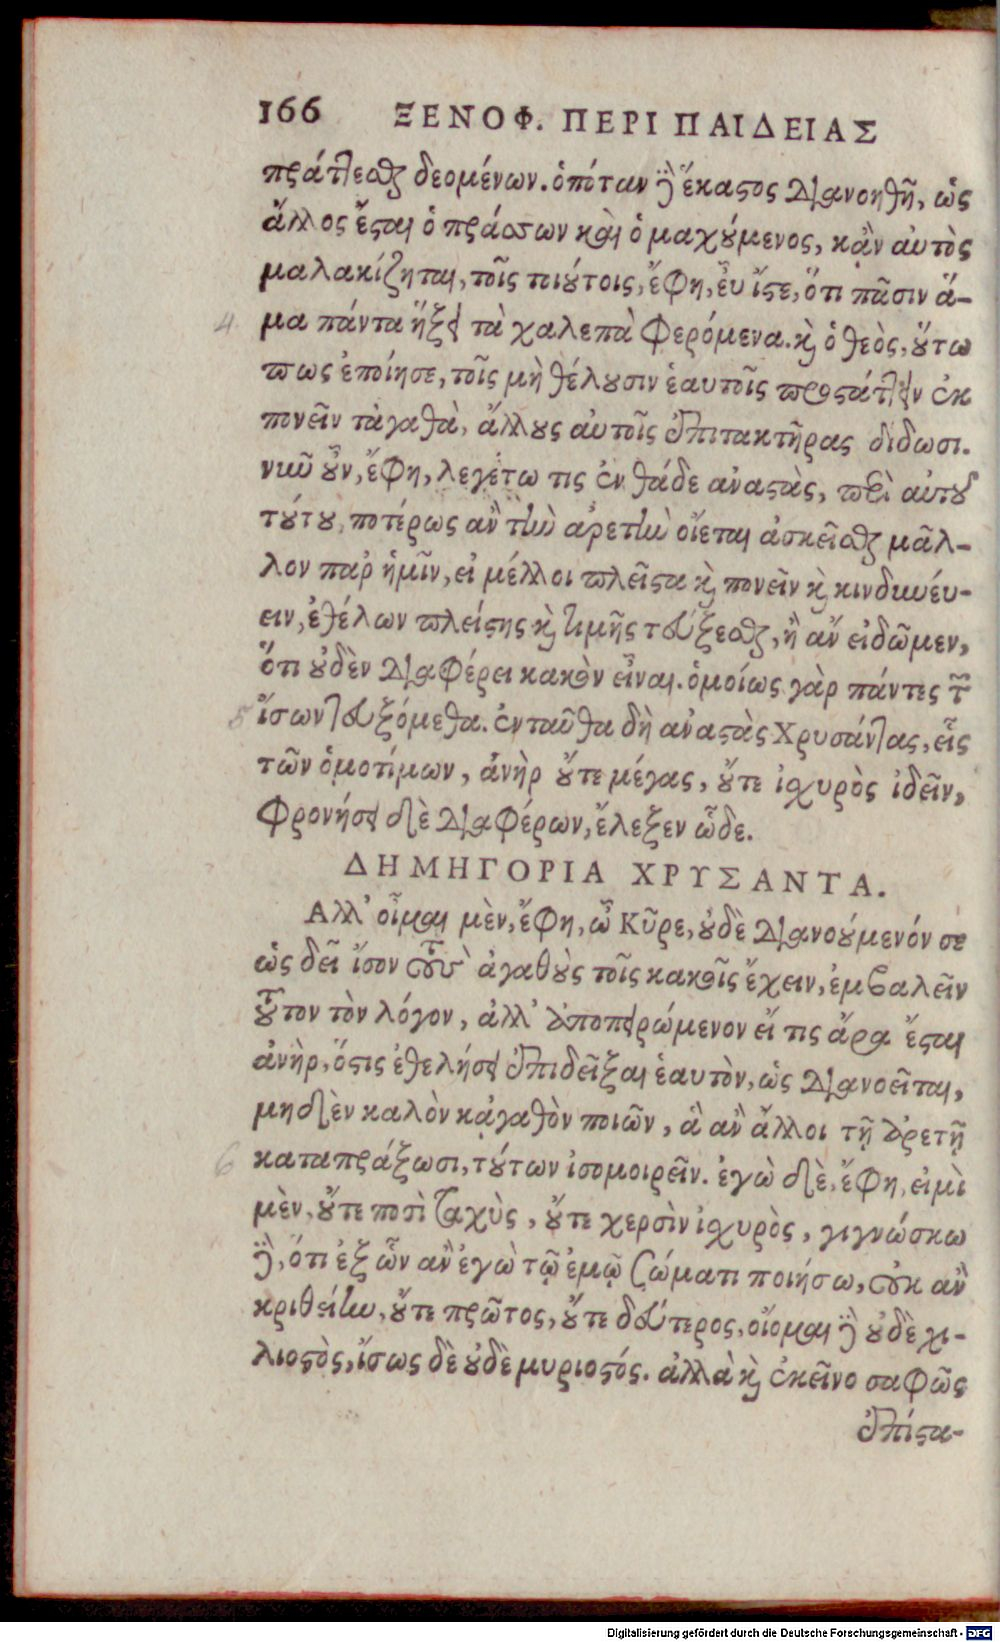 166 ΞΕΝΟΦ. ΠΕΡΙ ΠΑΙΔΕΙΑΣ
πράττεσθαι δεομένων. ὁπόταν δὲ ἕκαστος διανοηθῇ, ὡς
ἄλλος ἔσται ὁ πράσσων καὶ ὁ μαχούμενος, κᾂν αὐτὸς
μαλακίζηται, τοῖς τοιούτοις, ἔφη, εὖ ἴστε, ὅτι πᾶσιν ἅ-
μα πάντα ἥξει τὰ χαλεπὰ φερόμενα. καὶ ὁ θεὸς, οὕτω
πως ἐποίησε, τοῖς μὴ θέλουσιν ἑαυτοῖς προστάττειν ἐκ
πονεῖν τἀγαθὰ, ἄλλους αὐτοῖς ἐπιτακτῆρας δίδωσι.
νῦν οὖν, ἔφη, λεγέτω τις ἐνθάδε ἀναστὰς, περὶ αὐτοῦ
τούτου, ποτέρως ἂν τὴν ἀρετὴν οἴεται ἀσκεῖσθαι μᾶλ-
λον παρ ἡμῖν, εἰ μέλλοι πλεῖστα καὶ πονεῖν καὶ κινδυνεύ-
ειν, ἐθέλων πλείστης καὶ τιμῆς τεύξεσθαι, ἢ ἂν εἰδῶμεν,
ὅτι οὐδὲν διαφέρει κακὸν εἶναι. ὁμοίως γὰρ πάντες τῶν
ἴσων τευξόμεθα. ἐνταῦθα δὴ ἀναστὰς Χρυσάντας, εἷς
τῶν ὁμοτίμων, ἀνὴρ οὔτε μέγας, οὔτε ἰσχυρὸς ἰδεῖν,
φρονήσει δὲ διαφέρων, ἔλεξεν ὧδε.
ΔΗΜΗΓΟΡΙΑ ΧΡΥΣΑΝΤΑ.
Αλλ' οἶμαι μὲν, ἔφη, ὦ Κῦρε, οὐδὲ διανοούμενόν σε
ὡς δεῖ ἴσον τοὺς ἀγαθοὺς τοῖς κακοῖς ἔχειν, ἐμβαλεῖν
τοῦτον τὸν λόγον, ἀλλ' ἀποπειρώμενον εἴ τις ἄρα ἔσται
ἀνὴρ, ὅστις ἐθελήσει ἐπιδεῖξαι ἑαυτὸν, ὡς διανοεῖται,
μηδὲν καλὸν κᾀγαθὸν ποιῶν, ἃ ἂν ἄλλοι τῇ ἀρετῇ
καταπράξωσι, τούτων ἰσομοιρεῖν. ἐγὼ δὲ, ἔφη, εἰμὶ
μὲν, οὔτε ποσὶ ταχὺς, οὔτε χερσὶν ἰσχυρὸς, γιγνώσκω
δὲ, ὅτι ἐξ ὧν ἂν ἐγὼ τῷ ἐμῷ σώματι ποιήσω, οὐκ ἂν
κριθείην, οὔτε πρῶτος, οὔτε δεύτερος, οἴομαι δὲ οὐδὲ χι-
λιοστὸς, ἴσως δὲ οὐδὲ μυριοστός. ἀλλὰ καὶ ἐκεῖνο σαφῶς
ἐπίστα-
4
5
6
Digitalisierung gefördert durch die Deutsche Forschungsgemeinschaft - DFG